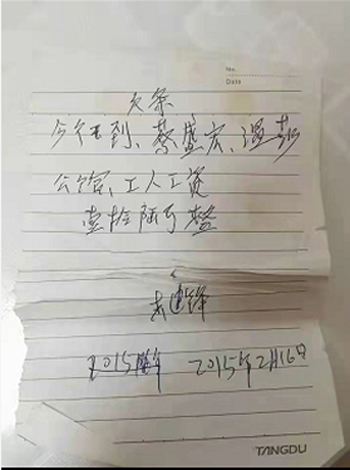 No.
Date
欠条
今欠到、蔡盛宏、温
公馆、工人工资
壹拾陆万整
2015年 2015年2月16日
TANGDU